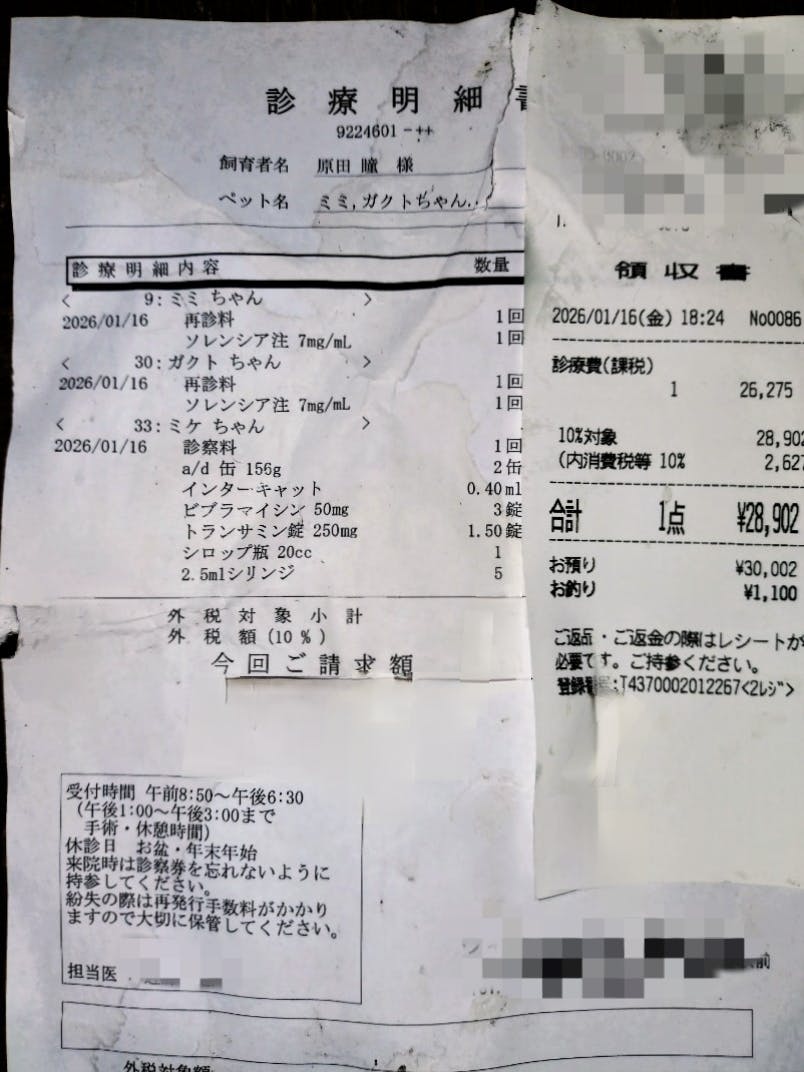 診療明細
9224601-++
飼育者名 原田 瞳 様
ペット名 ミミ,ガクトちゃん..
診療明細内容 数量
< 9:ミミ ちゃん >
2026/01/16 再診料 1回
ソレンシア注 7mg/mL 1回
< 30:ガクト ちゃん >
2026/01/16 再診料 1回
ソレンシア注 7mg/mL 1回
< 33:ミケ ちゃん >
2026/01/16 診察料 1回
a/d 缶 156g 2缶
インターキャット 0.40ml
ビブラマイシン 50mg 3錠
トランサミン錠 250mg 1.50錠
シロップ瓶 20cc 1
2.5mlシリンジ 5
外税対象小計
外税額(10%)
今回ご請求額
受付時間 午前8:50~午後6:30
(午後1:00~午後3:00まで
手術・休憩時間)
休診日 お盆・年末年始
来院時は診察券を忘れないように
持参してください。
紛失の際は再発行手数料がかかり
ますので大切に保管してください。
担当医
前
外税対象額
領収書
2026/01/16(金) 18:24 No0086
診療費(課税)
1 26,275
10%対象 28,902
(内消費税等 10% 2,627
合計 1点 ¥28,902
お預り ¥30,002
お釣り ¥1,100
ご返品・ご返金の際はレシートが
必要です。ご持参ください。
登録番号:T4370002012267<2レジ>